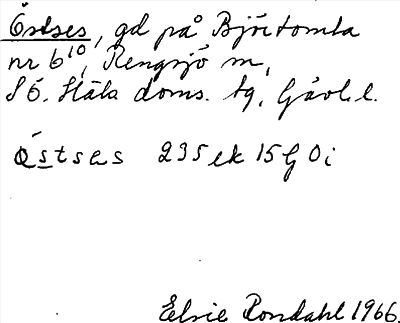 Östses, gd på Björtomta
nr 6¹⁰, Rengsjö sn,
SÖ. Häls doms. tg, Gävl.l.
Östses 235 ek 15G 0i
Elsie Rondahl 1966.